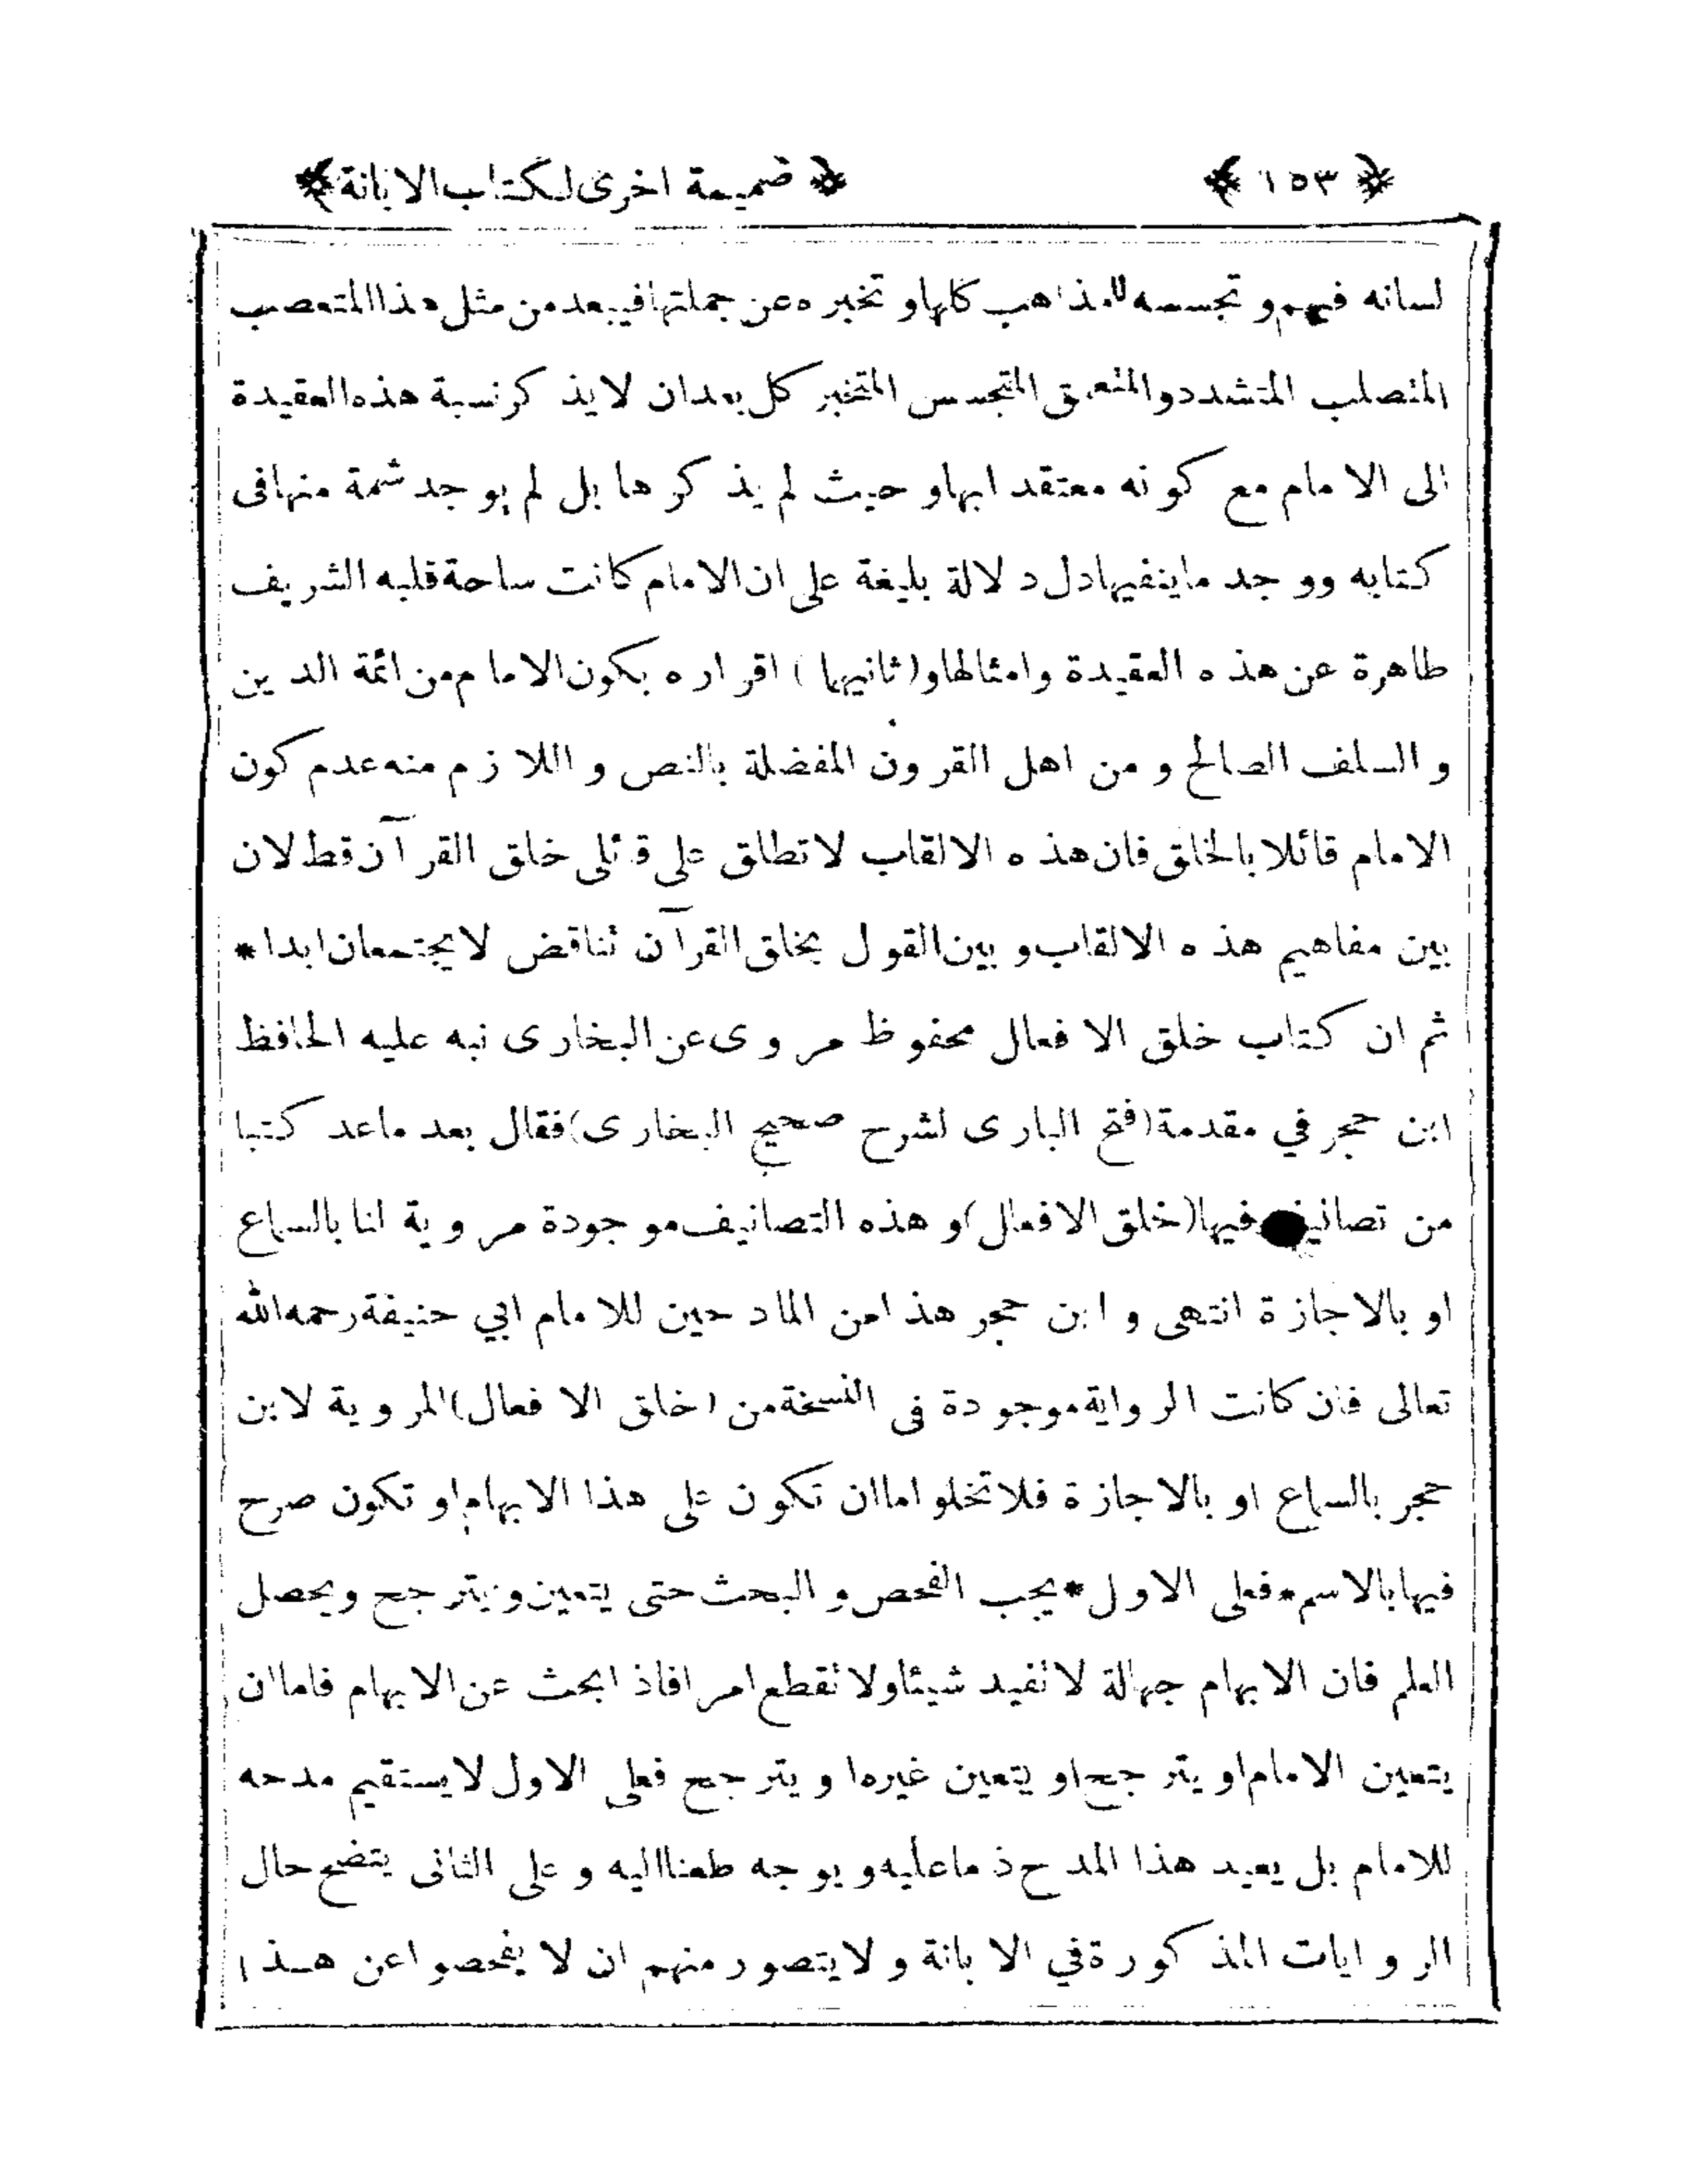 ﴿ ١٥٣ ﴾ ﴿ ضميمة اخرى لكتاب الابانة ﴾
لسانه فيهم و تجسسه للمذاهب كلها و تخبره عن جملتها فيبعد من مثل هذا المتعصب
المتصلب المتشدد والمتعمق المتجسس المتخبر كل بعد ان لا يذكر نسبة هذه العقيدة
الى الامام مع كونه معتقدا بها و حيث لم يذكرها بل لم يوجد شمة منها فى
كتابه ووجد ما ينفيها دل دلالة بليغة على ان الامام كانت ساحة قلبه الشريف
طاهرة عن هذه العقيدة وامثالها و(ثانيهما) اقراره بكون الامام من ائمة الدين
و السلف الصالح و من اهل القرون المفضلة بالنص و اللازم منه عدم كون
الامام قائلا بالخلق فان هذه الالقاب لا تطلق على قائلى خلق القرآن قط لان
بين مفاهيم هذه الالقاب و بين القول بخلق القرآن تناقض لا يجتمعان ابدا *
ثم ان كتاب خلق الافعال محفوظ مروى عن البخارى نبه عليه الحافظ
ابن حجر في مقدمة (فتح البارى لشرح صحيح البخارى) فقال بعد ما عد كتبا
من فيها (خلق الافعال) و هذه التصانيف موجودة مروية لنا بالسماع
او بالاجازة انتهى و ابن حجر هذا من المادحين للامام ابي حنيفة رحمه الله
تعالى فان كانت الرواية موجودة فى النسخة من (خلق الافعال) المروية لابن
حجر بالسماع او بالاجازة فلا تخلو اما ان تكون على هذا الابهام او تكون صرح
فيها بالاسم * فعلى الاول * يجب الفحص و البحث حتى يتعين و يترجح ويحصل
العلم فان الابهام جهالة لا تفيد شيئا ولا تقطع امرا فاذا بحث عن الابهام فاما ان
يتعين الامام او يترجح او يتعين غيره او يترجح فعلى الاول لا يستقيم مدحه
للامام بل يعيد هذا المدح ذما عليه و يوجه طعنا اليه و على الثانى يتضح حال
الروايات المذكورة في الابانة و لا يتصور منهم ان لا يفحصوا عن هذا